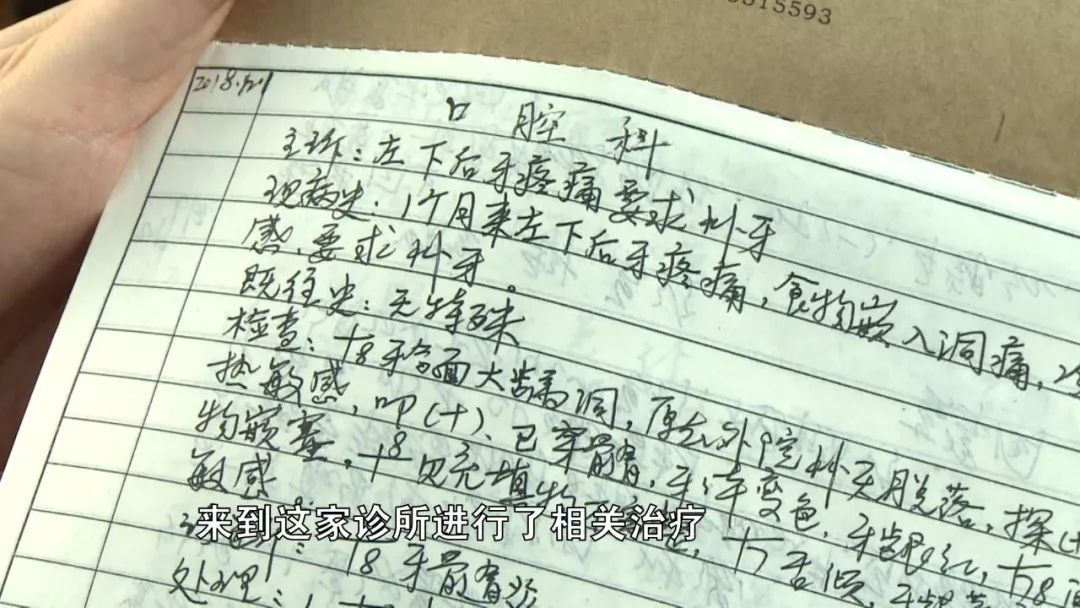 5315593
2018.1.20
口腔科
主诉：左下后牙疼痛要求补牙
现病史：1个月来左下后牙疼痛，食物嵌入洞痛，冷
感，要求补牙。
既往史：无特殊
检查：8牙𬌗面大龋洞，原在外院补牙脱落，探(+
热敏感，叩(+)、已穿髓，牙体变色，牙龈红，8
物嵌塞，8见充填物
敏感
来到这家诊所进行了相关治疗
8牙髓炎
处理：